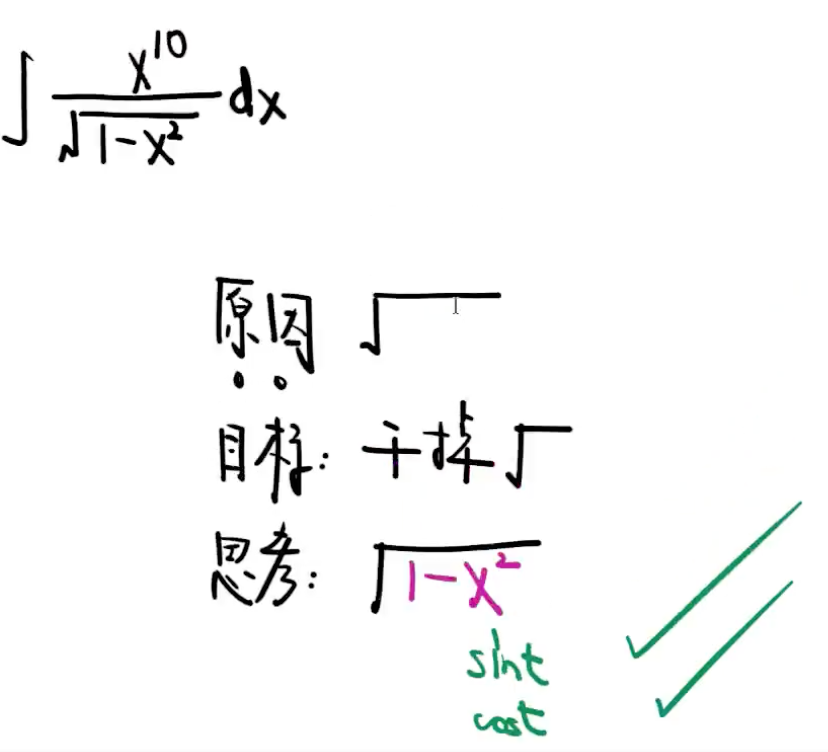 ∫ x¹⁰/√(1-x²) dx
原因 √
目标: 干掉√
思考: √(1-x²)
sint
cost